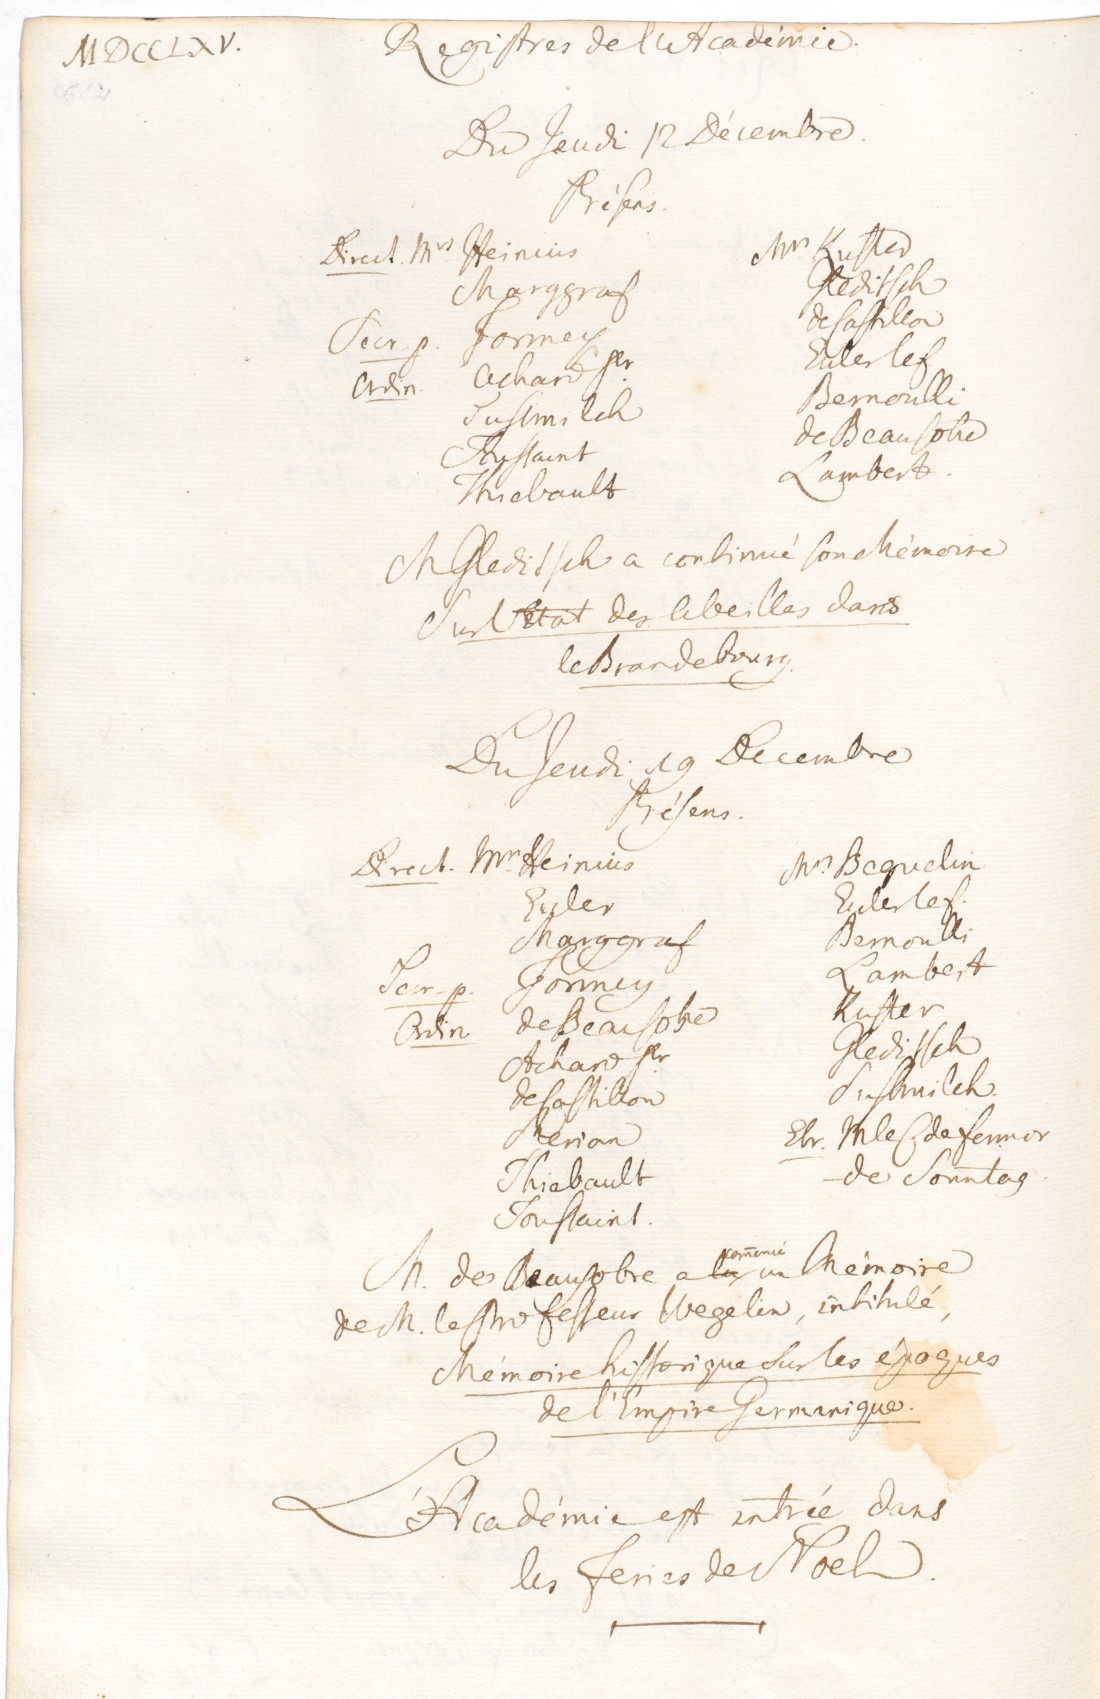 MDCCLXV.
Registres de l'Académie.
Du Jeudi 12 Décembre.
Présens.
Direct. Mrs Heinius
Marggraf
Secr. p. Formey
Ordin. Achard Ser
Susmilch
Toussaint
Thiebault
Mrs Kuster
Gleditsch
de Castillon
Euler le f
Bernoulli
de Beausobre
Lambert.
M Gleditsch a continué son Mémoire
Sur l'état des Abeilles dans
le Brandebourg.
Du Jeudi 19 Decembre
Présens.
Direct. Mrs Heinius
Euler
Marggraf
Secr. p. Formey
Ordin de Beausobre
Achard Ser
de Castillon
Merian
Thiebault
Toussaint.
Mrs Beguelin
Euler le f.
Bernoulli
Lambert
Kuster
Gleditsch
Susmilch.
Etr. M le C. de Fermor
- de Sonntag.
M. de Beausobre a lu comunié un Mémoire
de M. le Professeur Wegelin, intitulé,
Mémoire historique sur les époques
de l'Empire Germanique.
L'Académie est entrée dans
les feries de Noel.